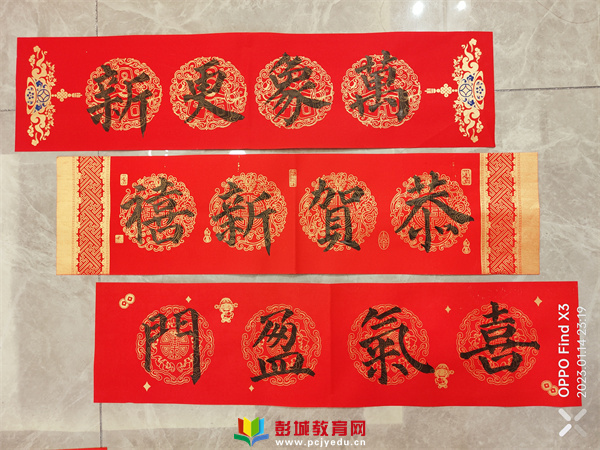 萬象更新
恭賀新禧
喜氣盈門
OPPO Find X3
2023.01.14 23:19
彭城教育网
www.pcjyedu.cn